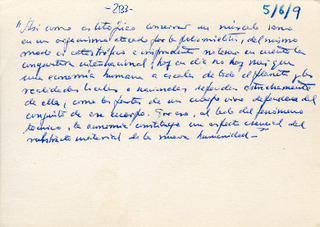 -233-
5/6/9
"Así como es utópico conservar un músculo sano
en un organismo atacado por la poliomielitis, del mismo
modo es catastrófico e imprudente no tener en cuenta la
coyuntura internacional; hoy en día no hay más que
una economía humana a escala de todo el planeta y las
realidades locales o nacionales dependen estrechamente
de ella, como las partes de un cuerpo vivo dependen del
conjunto de ese cuerpo. Por eso, al lado del fenómeno
técnico, la economía constituye un aspecto esencial del
substrato material de la nueva humanidad".